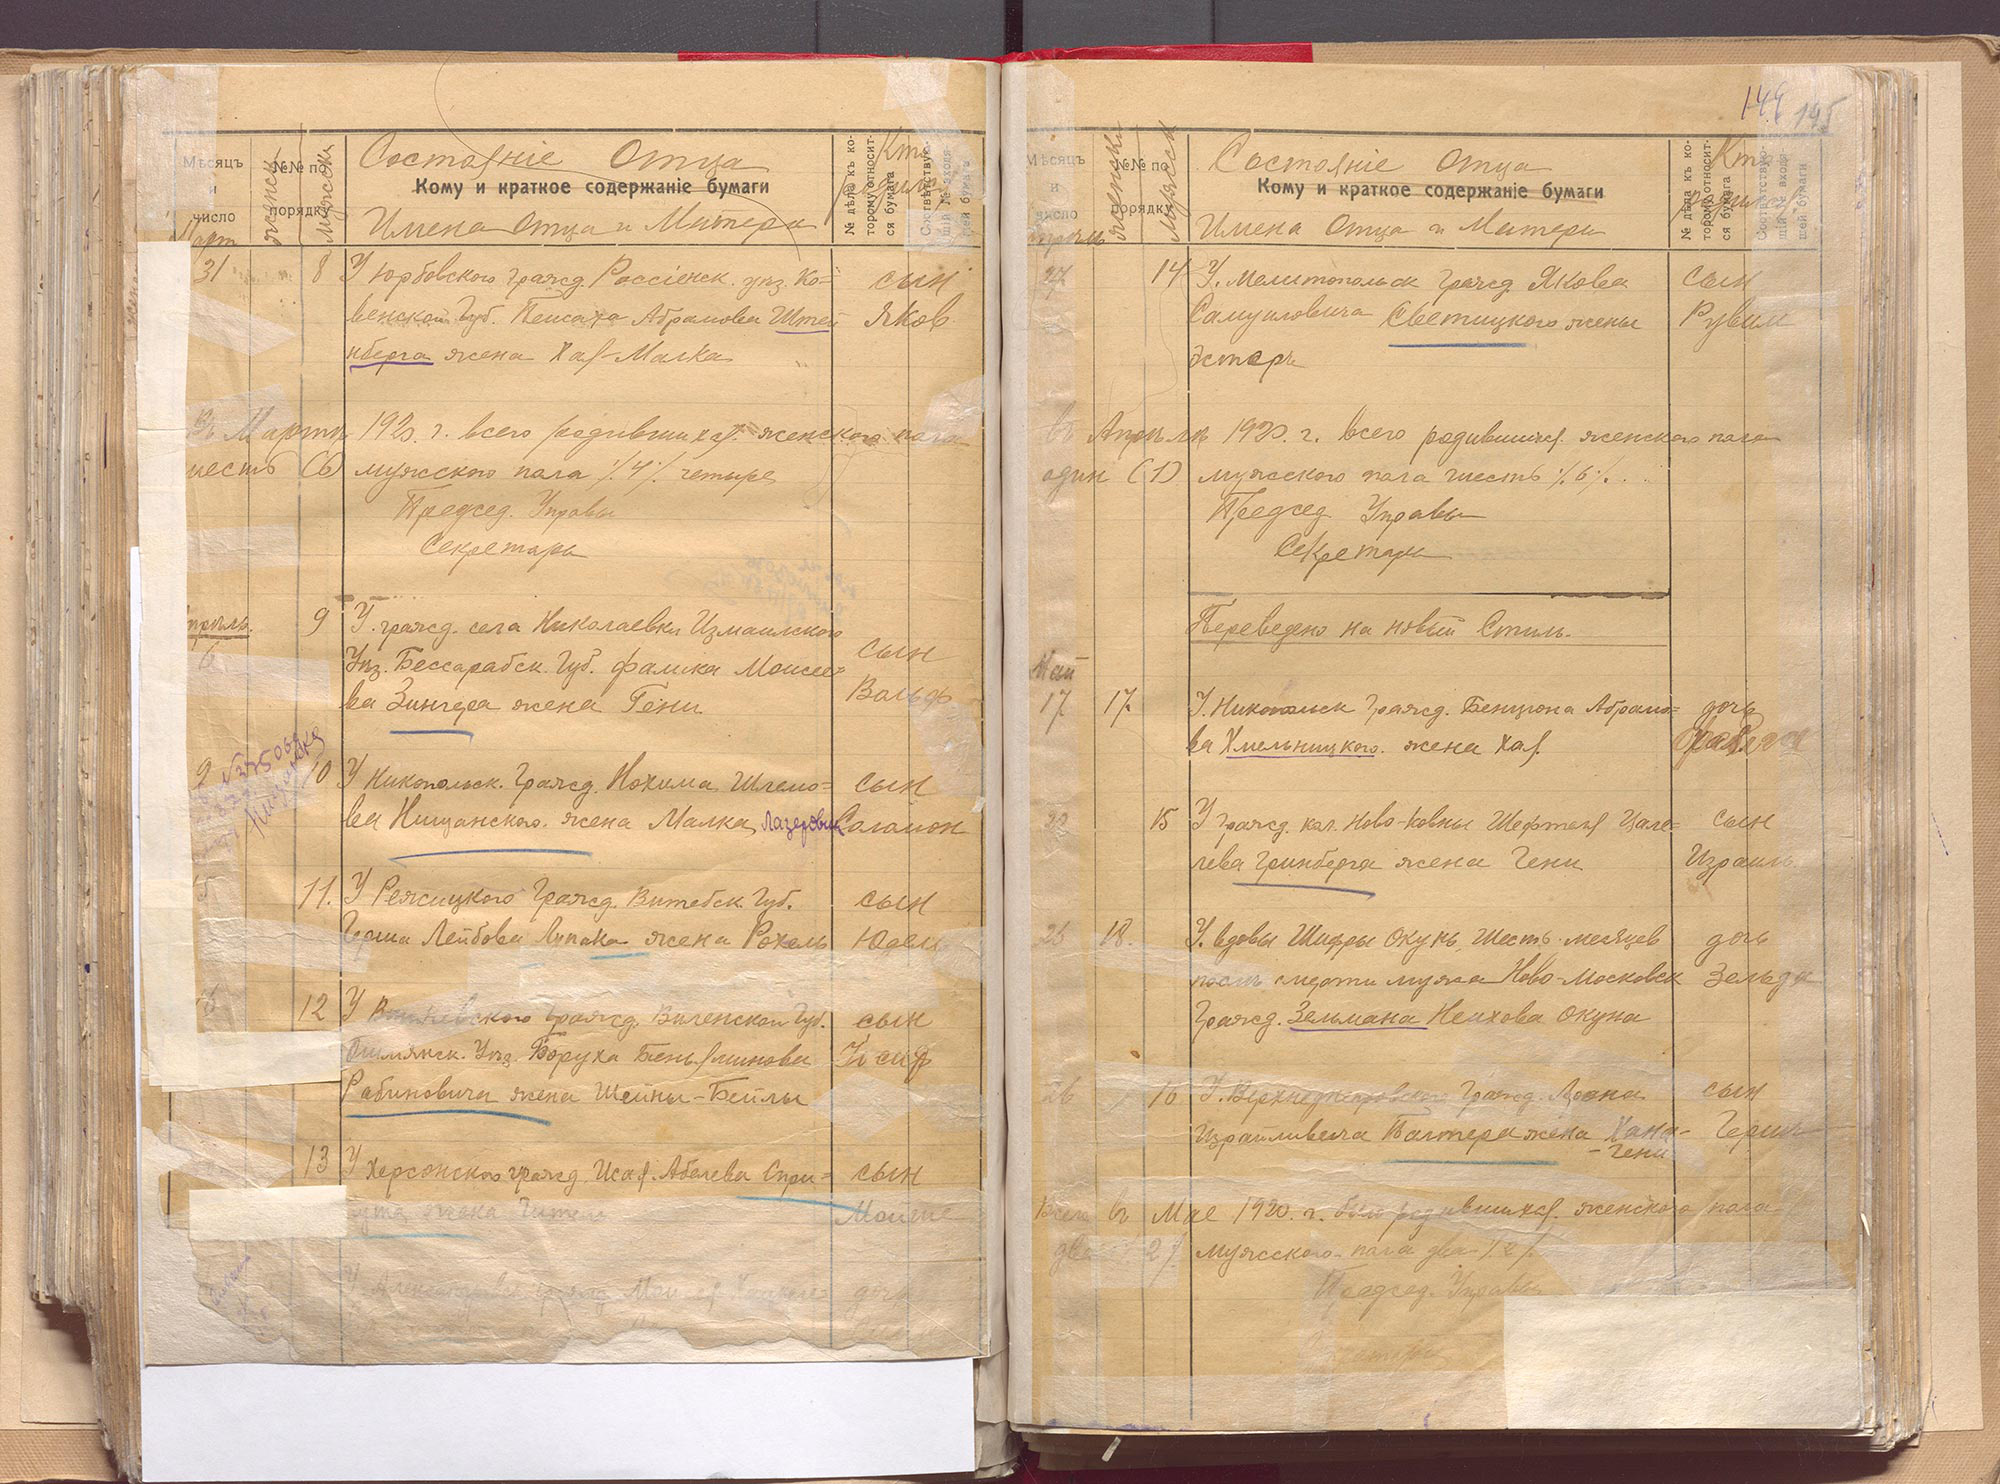 Мѣсяцъ и число
Женск
№№ по порядку
Мужск
Состояніе Отца
Кому и краткое содержаніе бумаги
Имена Отца и Матери
№ дѣла къ которому относится бумага
Кто
Март
31 8 У Юрбовского гражд. Россіенск. уѣз. Ко-
венской Губ. Пейсаха Абрамова Штей
нберга жена Хая-Малка
сын
Яков
Въ Мартѣ 1920. г. всего родившихся женского пола
шесть (6) мужского пола ./.4./. четыре
Председ. Управы
Секретарь
Апрѣль.
6 9 У. гражд. села Николаевки Измаилского
Уѣз. Бессарабск. Губ. Фалика Моисее=
ва Зингера жена Гени
сын
Вольф
9 10 У Никопольск. Гражд. Нохима Шлемо=
ва Нищанского. жена Малка, Лазеровна
сын
Саломон
15 11. У Режицкого Гражд. Витебск. Губ.
Герша Лейбова Лупана жена Рохель
сын
Юдел
16 12 У Гражд. Виленской Губ.
Ошмянск. Уѣз. Боруха Беньяминова
Рабиновича жена Шейны-Бейлы
сын
Иосиф
13 У Херсонского гражд. Исая Абелева Спри=
гута жена Гител
сын
Моише
дочь
149 145
Мѣсяцъ и число
Женск
№№ по порядку
Мужск
Состояніе Отца
Кому и краткое содержаніе бумаги
Имена Отца и Матери
№ дѣла къ которому относится бумага
Соотвѣтствующій № входящей бумаги
Апрѣль
27 14 У. Мелитопольск Гражд. Якова
Самуиловича Светицкого жены
Эстерь
сын
Рувим
въ Апрѣлѣ 1920. г. всего родившихся женского пола
один (1) мужского пола шесть ./.6./. . .
Председ Управы
Секретарь
Переведено на новый Стиль.
Май
17 17. У. Никопольск Гражд. Бенциона Абрамо=
ва Хмельницкого. жена Хая
дочь
15 У гражд. кол. Ново-Ковны Шефтеля Цале=
лева Гринберга жена Гени
сын
Израиль
25 18. У. вдовы Шифры Окунь Шесть месяцев
послѣ смерти мужа Ново-Московск
Гражд. Зельмана Неихова Окуна
дочь
Зельда
26 16 У. Верхнеднепровского Гражд. Арона
Израйлевича Балтера жена Хана-
-Гени
сын
Герш
Всего въ Мае 1920. г. было родившихся женского пола
два ./.2./. мужского пола два ./.2./.
Председ. Управы